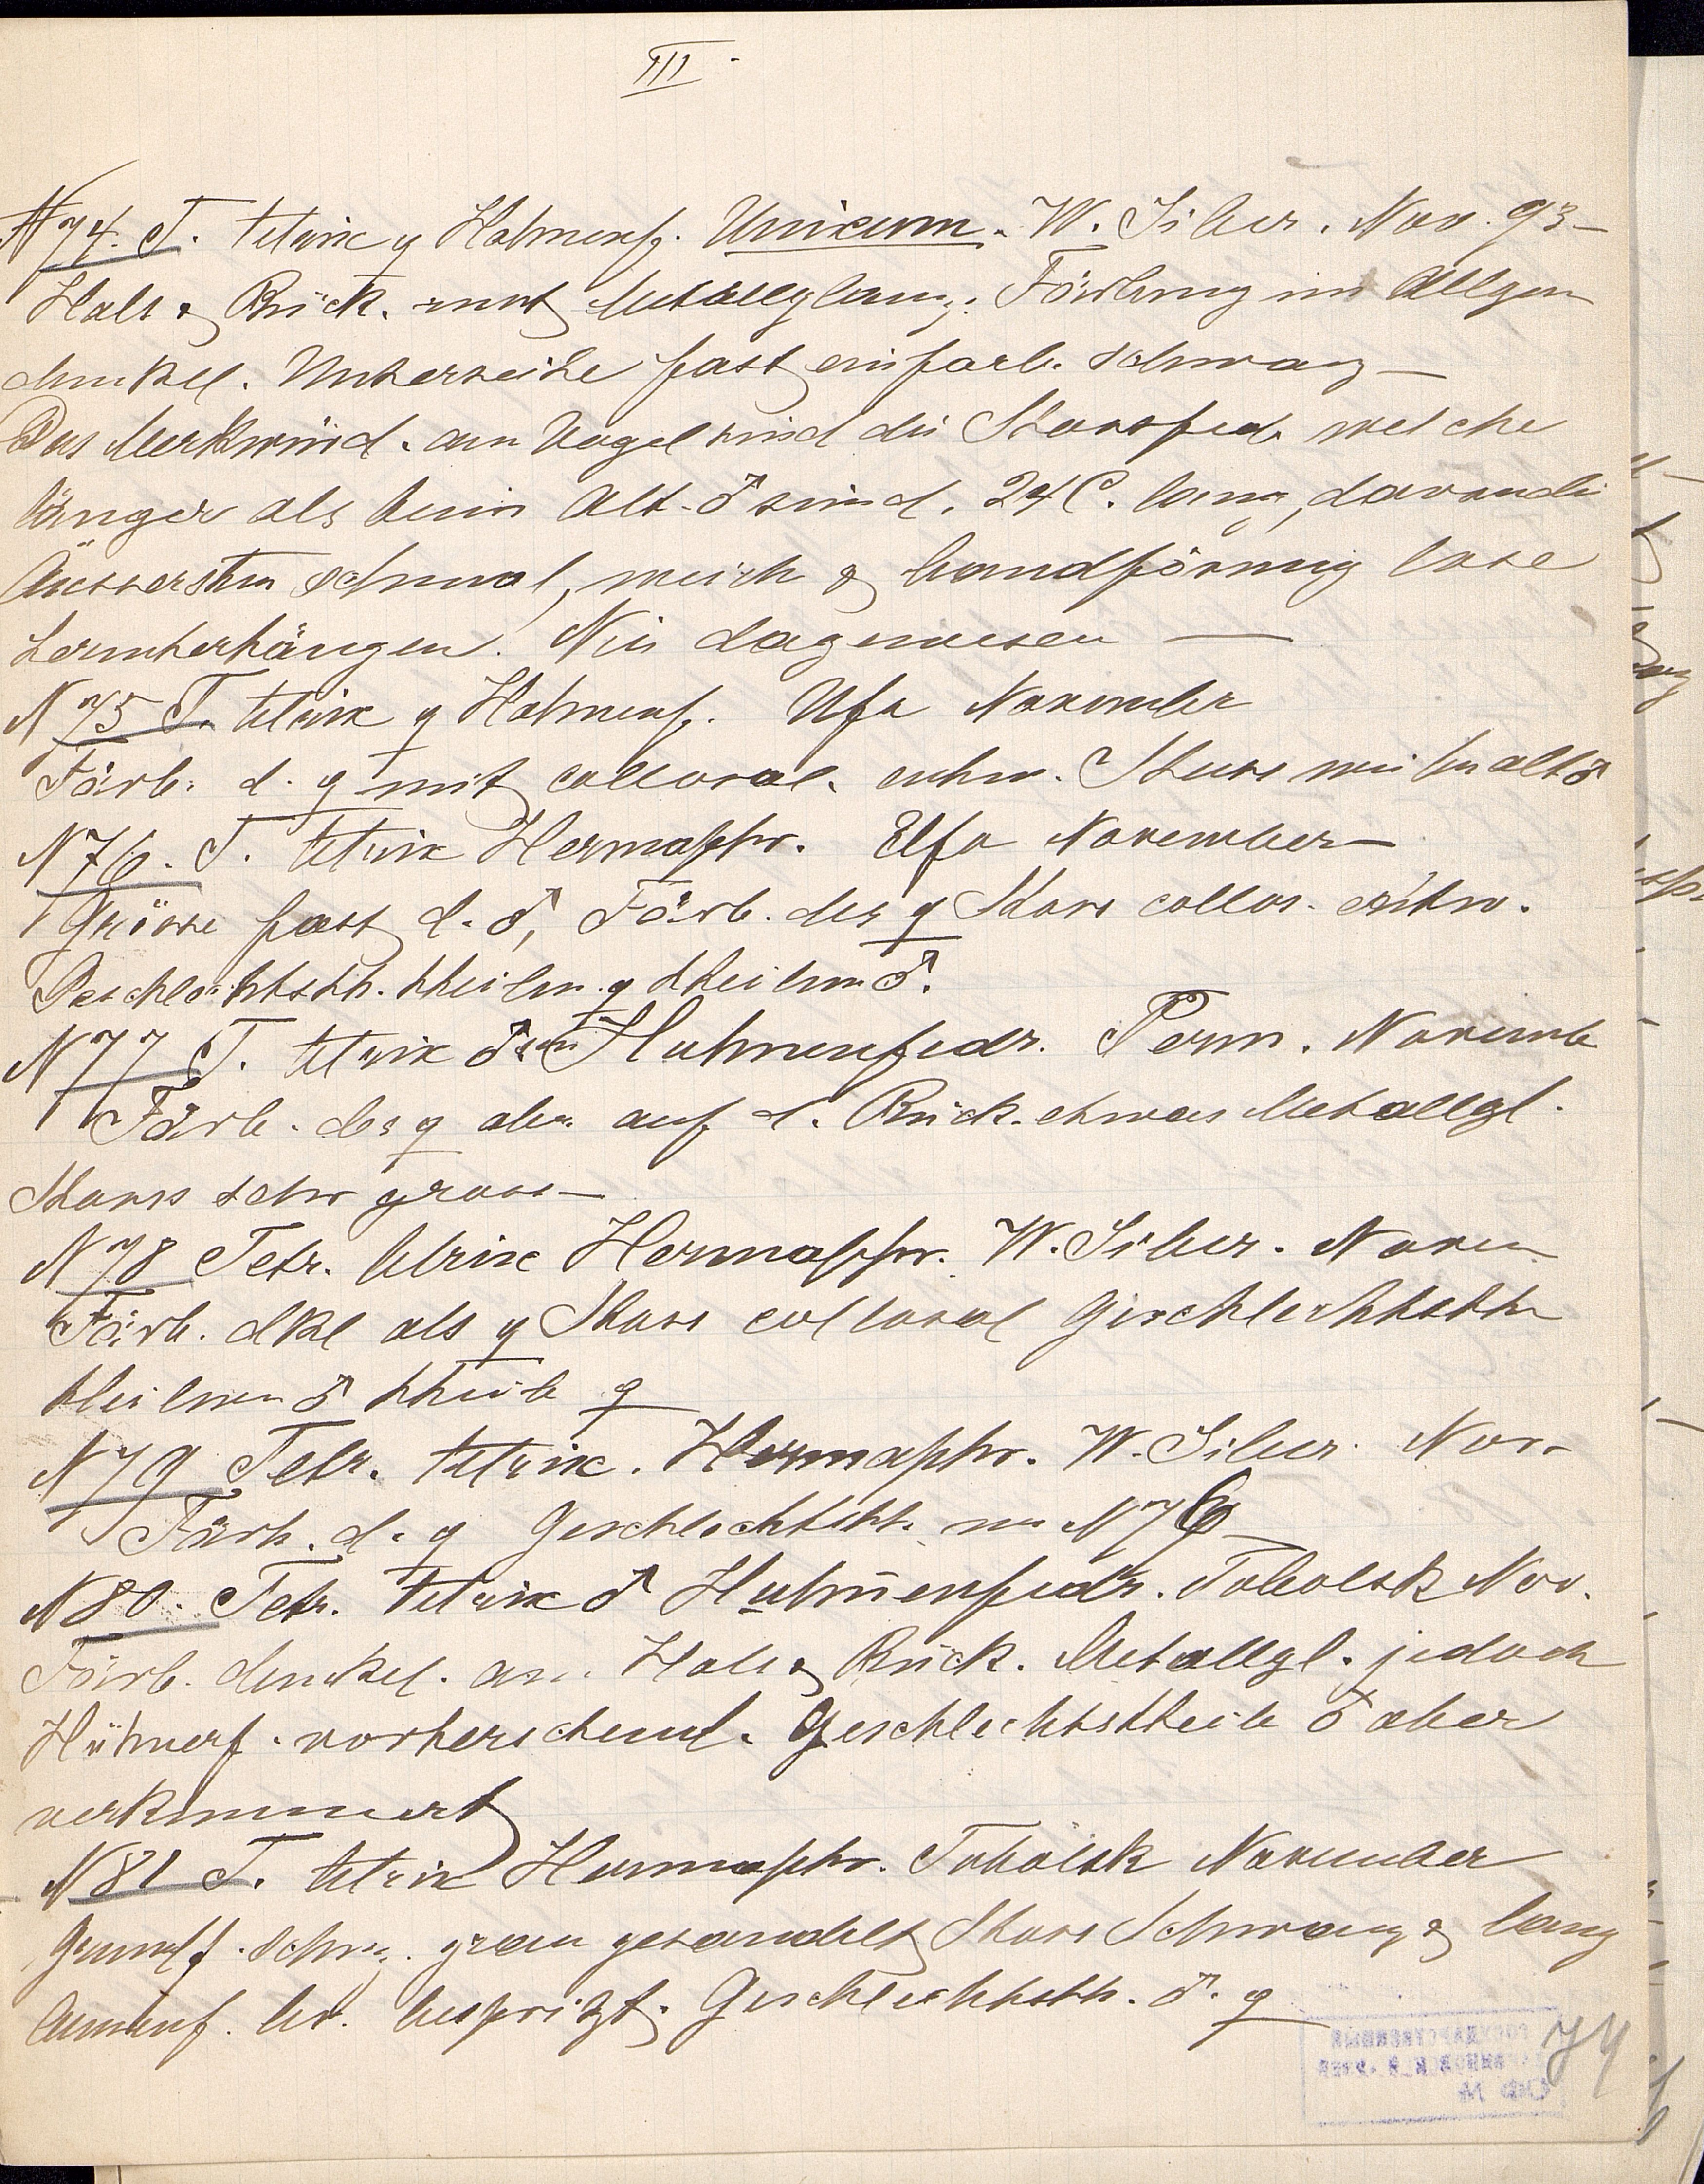 III.
N 74. T. tetrix ♀ Hahnenf. Unicum. W. Sibir. Nov. 93 –
Hals & Rück. mit Metallglanz. Färbung im Allgem
dunkel. Unterseite fast einfarb. schwarz –
Das Merkwürd. am Vogel sind die Stossfed. welche
länger als beim Alt. ♂ sind, 24 C. lang, davon die
Äussersten schmal, weich & bandförmig lose
herunterhängen. Nie dagewesen —
N 75 T. tetrix ♀ Hahnenf. Ufa November
Färb. d. ♀ mit collosal. schw. Stoss wie bei alt ♂
N 76. T. tetrix Hermaphr. Ufa November –
Grösse fast d. ♂, Färb. des ♀ Stoss collos. schw.
Geschlechtsth. theilw. ♀ theilw. ♂.
N 77 T. tetrix ♂ Huhnenfedr. Perm. Novemb
Färb. des ♀ aber auf d. Rück. etwas Metallgl.
Stoss sehr gross –
N 78 Tetr. tetrix Hermaphr. W. Sibir. Novem
Färb. dkl als ♀ Stoss collosal Geschlechtsth
theilwen ♂ theils ♀
N 79 Tetr. tetrix. Hermaphr. W. Sibir. Nov.
Färb. d. ♀ Geschlechtsth. N 76
N 80. Tetr. tetrix ♂ Huhnenfedr. Tobolsk Nov.
Färb. dunkel. an Hals & Rück. Metallgl. jedoch
Hühnerf. vorherschend. Geschlechtstheile ♂ aber
verkümmert
N 81 T. tetrix Hermaphr. Tobolsk November
Grundf. schwz. grau gerandelt Stoss Schwarz & lang
br. bespritzt. Geschlechtsth. ♂. ♀
74